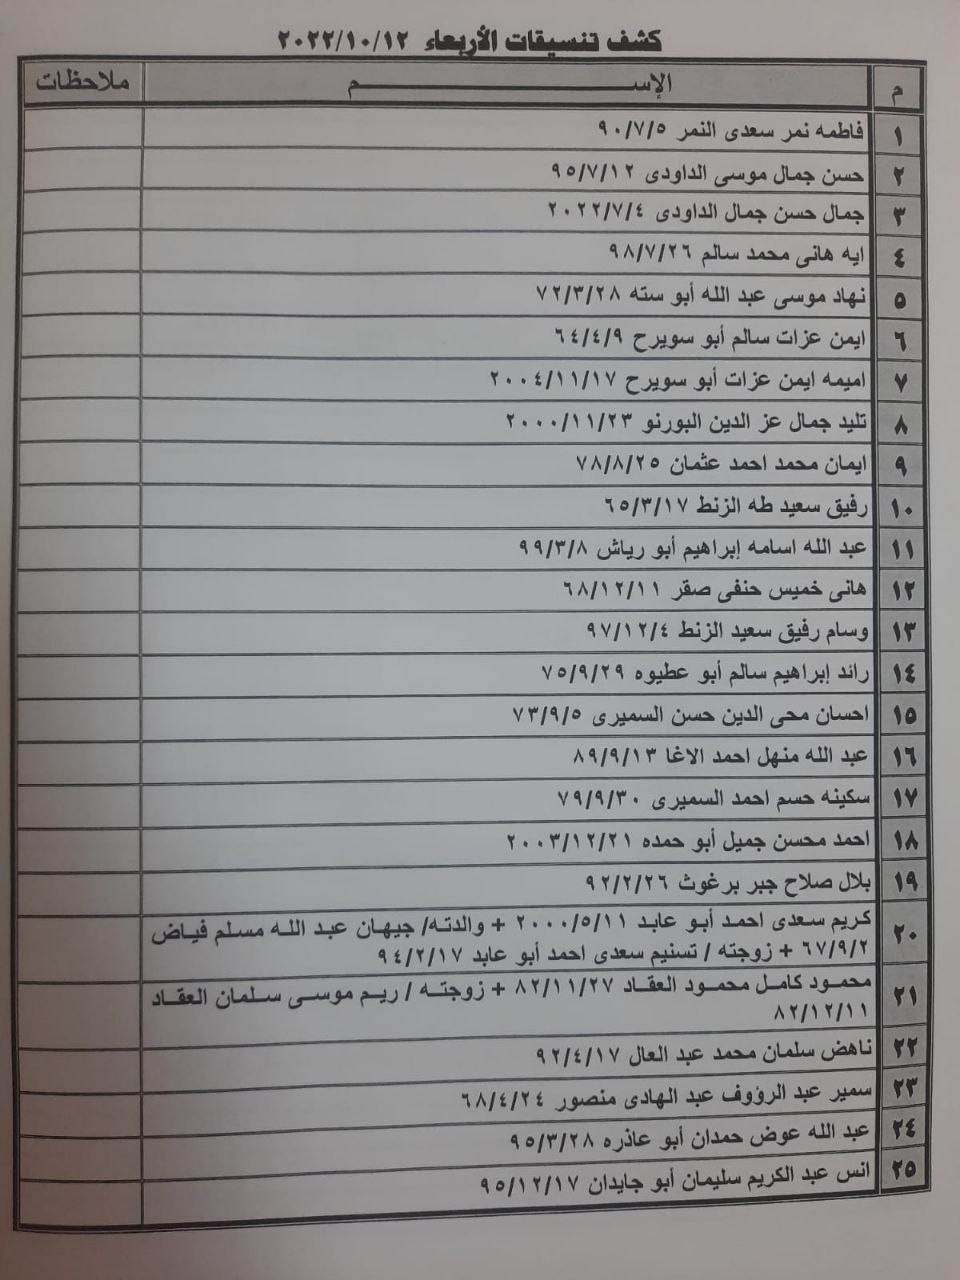 كشف تنسيقات الأربعاء ٢٠٢٢/١٠/١٢
م الإســـــــــم ملاحظات
١ فاطمه نمر سعدى النمر ٩٠/٧/٥
٢ حسن جمال موسى الداودى ٩٥/٧/١٢
٣ جمال حسن جمال الداودى ٢٠٢٢/٧/٤
٤ ايه هانى محمد سالم ٩٨/٧/٢٦
٥ نهاد موسى عبد الله أبو سته ٧٢/٣/٢٨
٦ ايمن عزات سالم أبو سويرح ٦٤/٤/٩
٧ اميمه ايمن عزات أبو سويرح ٢٠٠٤/١١/١٧
٨ تليد جمال عز الدين البورنو ٢٠٠٠/١١/٢٣
٩ ايمان محمد احمد عثمان ٧٨/٨/٢٥
١٠ رفيق سعيد طه الزنط ٦٥/٣/١٧
١١ عبد الله اسامه إبراهيم أبو رياش ٩٩/٣/٨
١٢ هانى خميس حنفى صقر ٦٨/١٢/١١
١٣ وسام رفيق سعيد الزنط ٩٧/١٢/٤
١٤ رائد إبراهيم سالم أبو عطيوه ٧٥/٩/٢٩
١٥ احسان محى الدين حسن السميرى ٧٣/٩/٥
١٦ عبد الله منهل احمد الاغا ٨٩/٩/١٣
١٧ سكينه حسم احمد السميرى ٧٩/٩/٣٠
١٨ احمد محسن جميل أبو حمده ٢٠٠٣/١٢/٢١
١٩ بلال صلاح جبر برغوث ٩٢/٢/٢٦
٢٠ كريم سعدى احمد أبو عابد ٢٠٠٠/٥/١١ + والدته/ جيهان عبد الله مسلم فياض
٦٧/٩/٢ + زوجته / تسنيم سعدى احمد أبو عابد ٩٤/٢/١٧
٢١ محمود كامل محمود العقاد ٨٢/١١/٢٧ + زوجته / ريم موسى سلمان العقاد
٨٢/١٢/١١
٢٢ ناهض سلمان محمد عبد العال ٩٢/٤/١٧
٢٣ سمير عبد الرؤوف عبد الهادى منصور ٦٨/٤/٢٤
٢٤ عبد الله عوض حمدان أبو عاذره ٩٥/٣/٢٨
٢٥ انس عبد الكريم سليمان أبو جايدان ٩٥/١٢/١٧